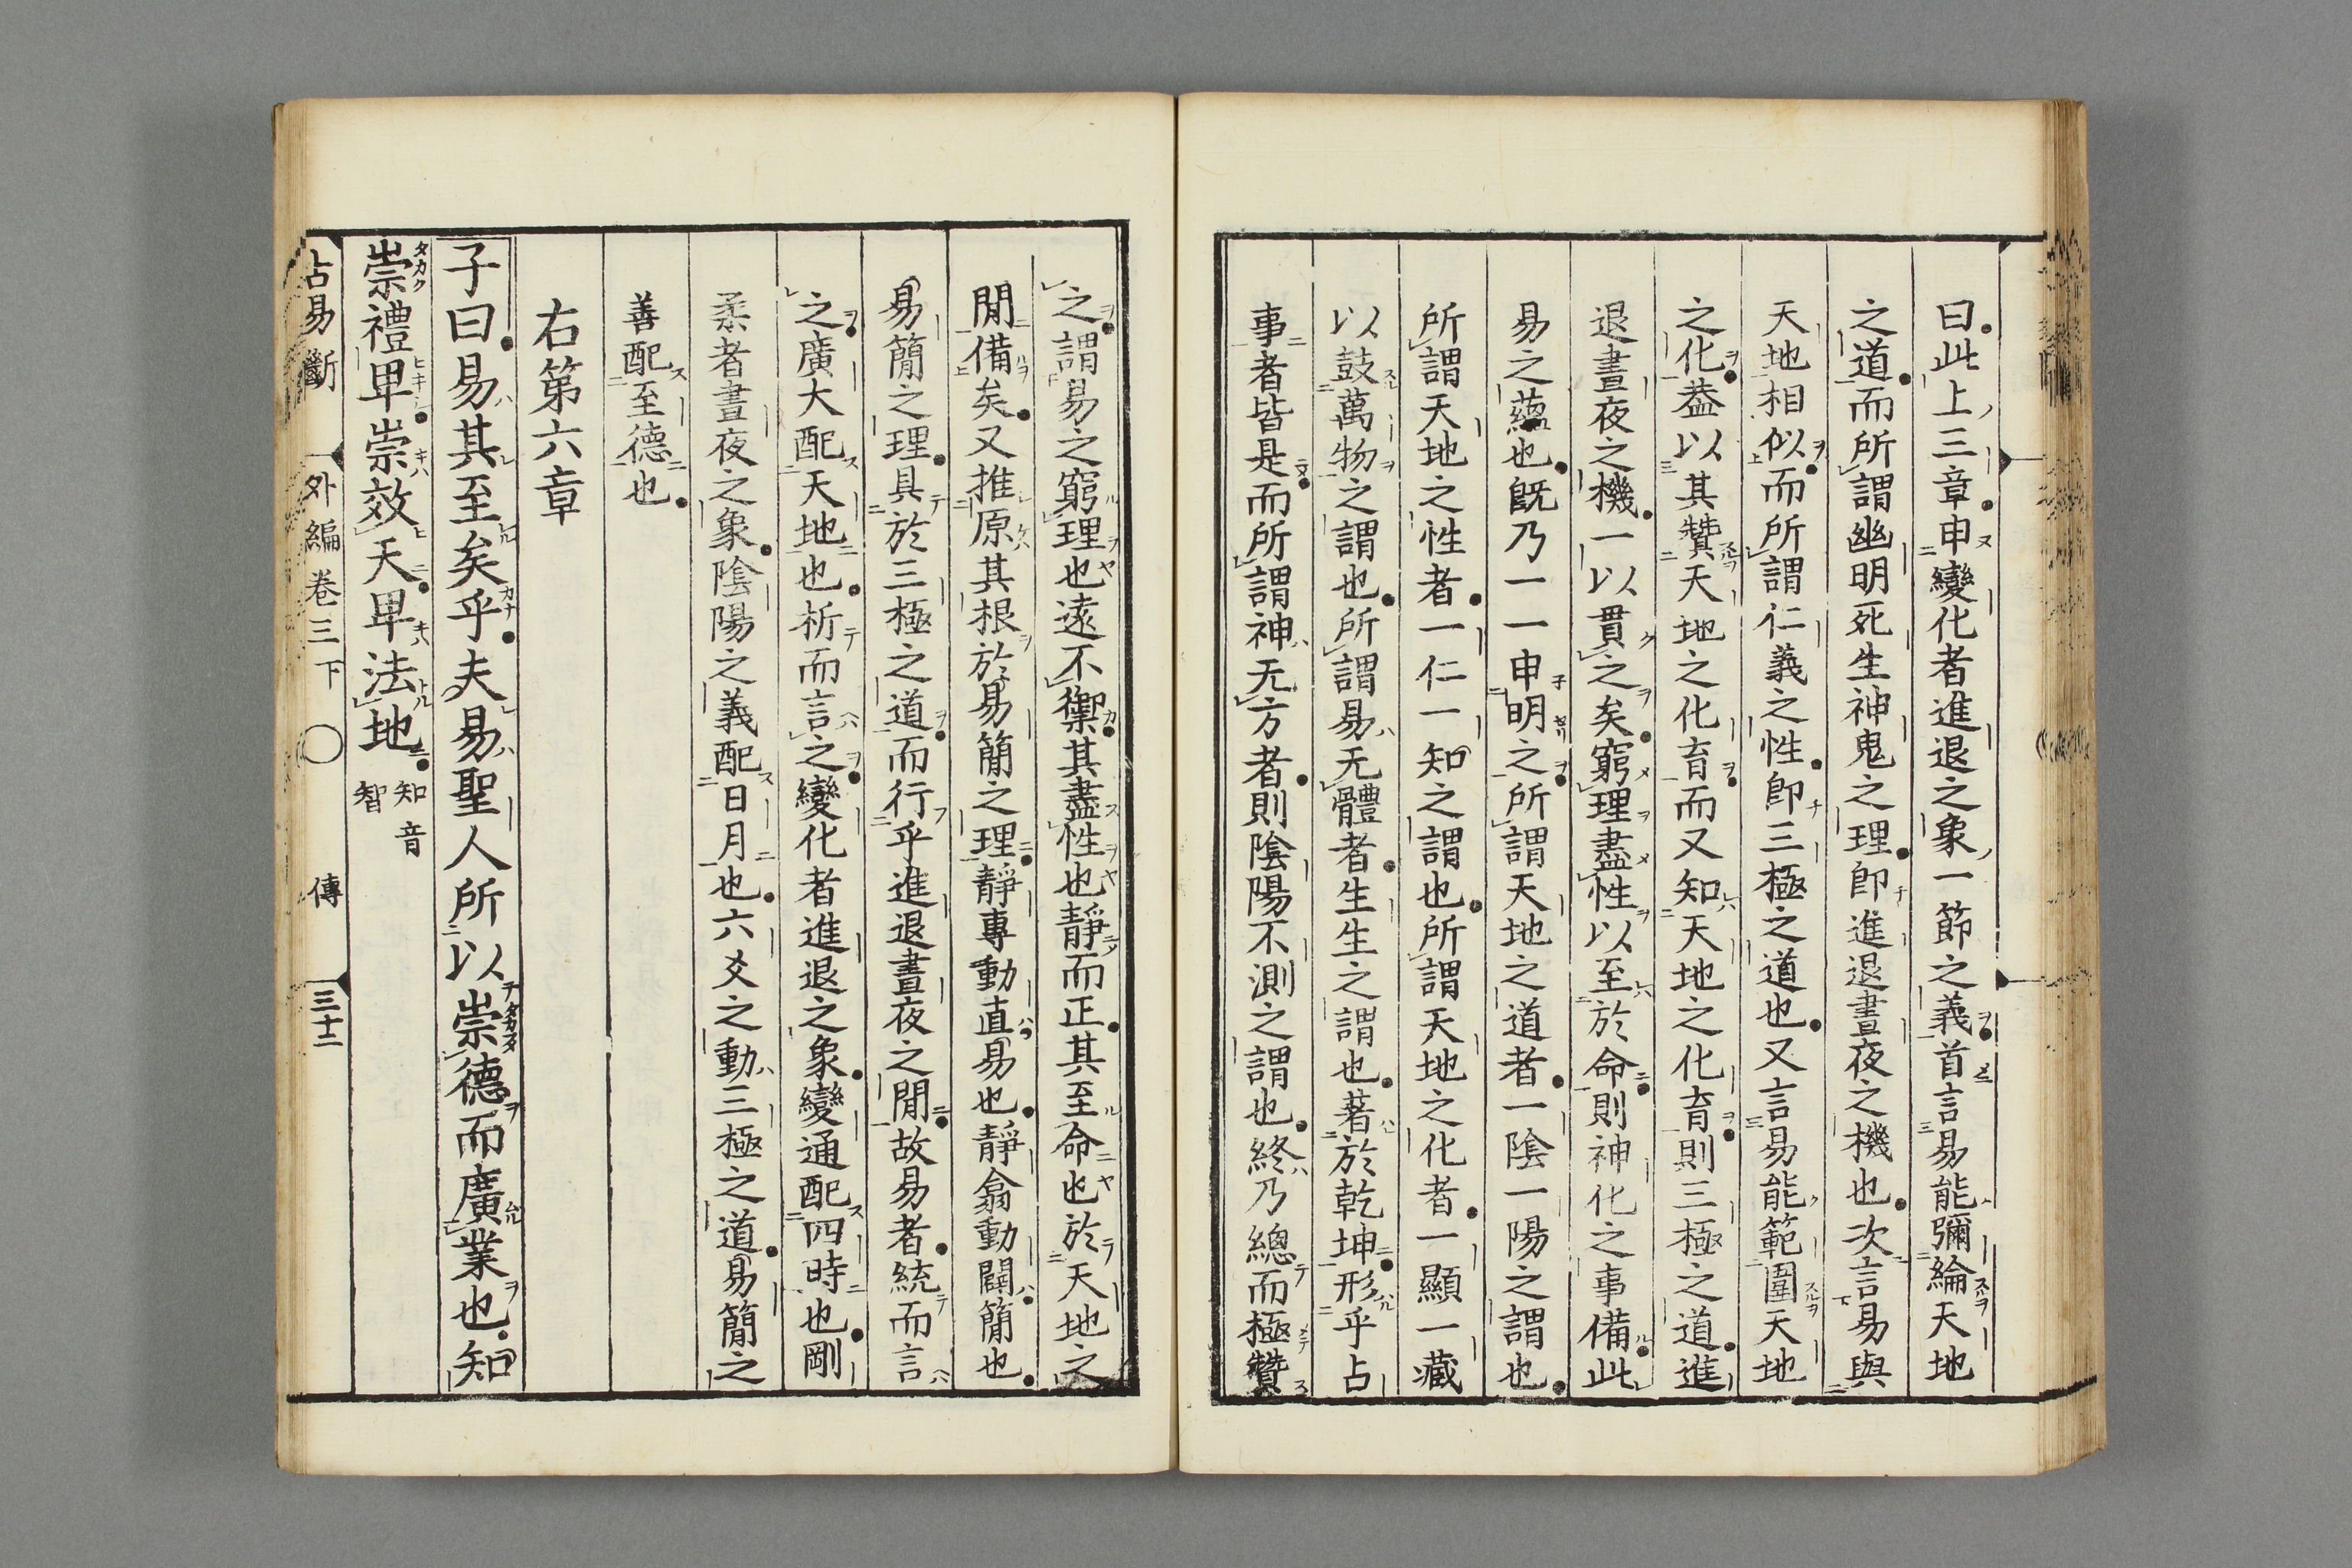 曰此上三章申變化者進退之象一節之義首言易能彌綸天地
之道而所謂幽明死生神鬼之理卽進退晝夜之機也次言易與
天地相似而所謂仁義之性卽三極之道也又言易能範圍天地
之化葢以其贊天地之化育而又知天地之化育則三極之道進
退晝夜之機一以貫之矣窮理盡性以至於命則神化之事備此
易之蘊也旣乃一一申明之所謂天地之道者一陰一陽之謂也
所謂天地之性者一仁一知之謂也所謂天地之化者一顯一藏
以鼓萬物之謂也所謂易无體者生生之謂也著於乾坤形乎占
事者皆是而所謂神无方者則陰陽不測之謂也終乃總而極贊
之謂易之窮理也遠不禦其盡性也靜而正其至命也於天地之
閒備矣又推原其根於易簡之理靜專動直易也靜翕動闢簡也
易簡之理具於三極之道而行乎進退晝夜之閒故易者統而言
之廣大配天地也析而言之變化者進退之象變通配四時也剛
柔者晝夜之象陰陽之義配日月也六爻之動三極之道易簡之
善配至德也
右第六章
子曰易其至矣乎夫易聖人所以崇德而廣業也知
崇禮卑崇效天卑法地 知音智
占易斷 外編卷三下 〇 傳 三十二